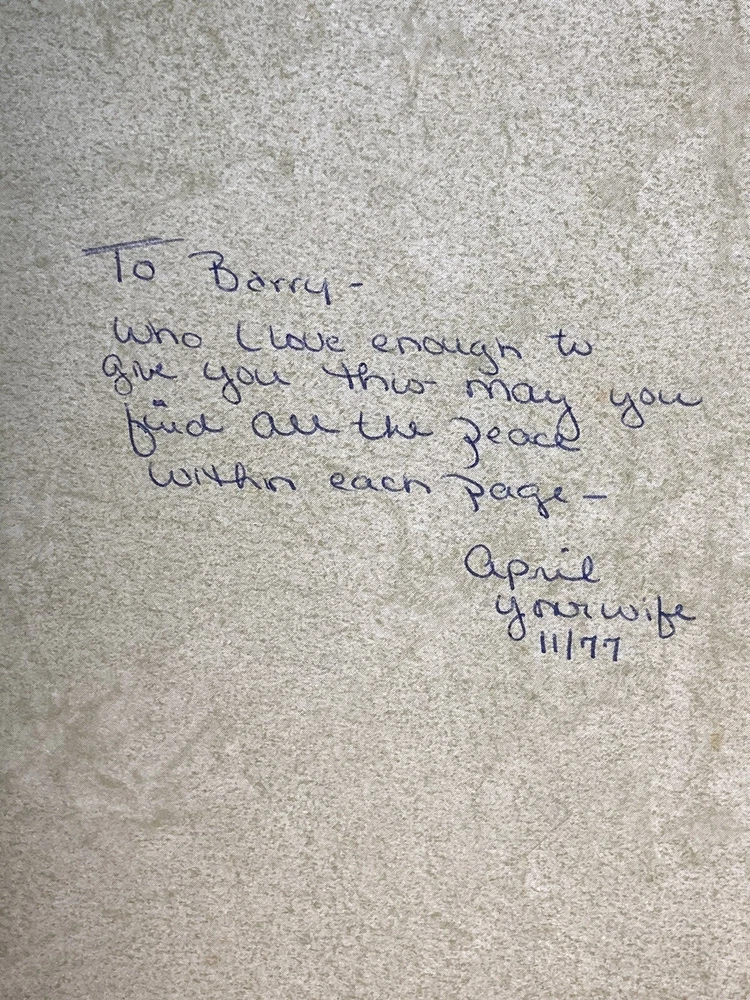 To Barry -
Who I love enough to
give you this may you
find all the peace
within each page -
April
your wife
11/77